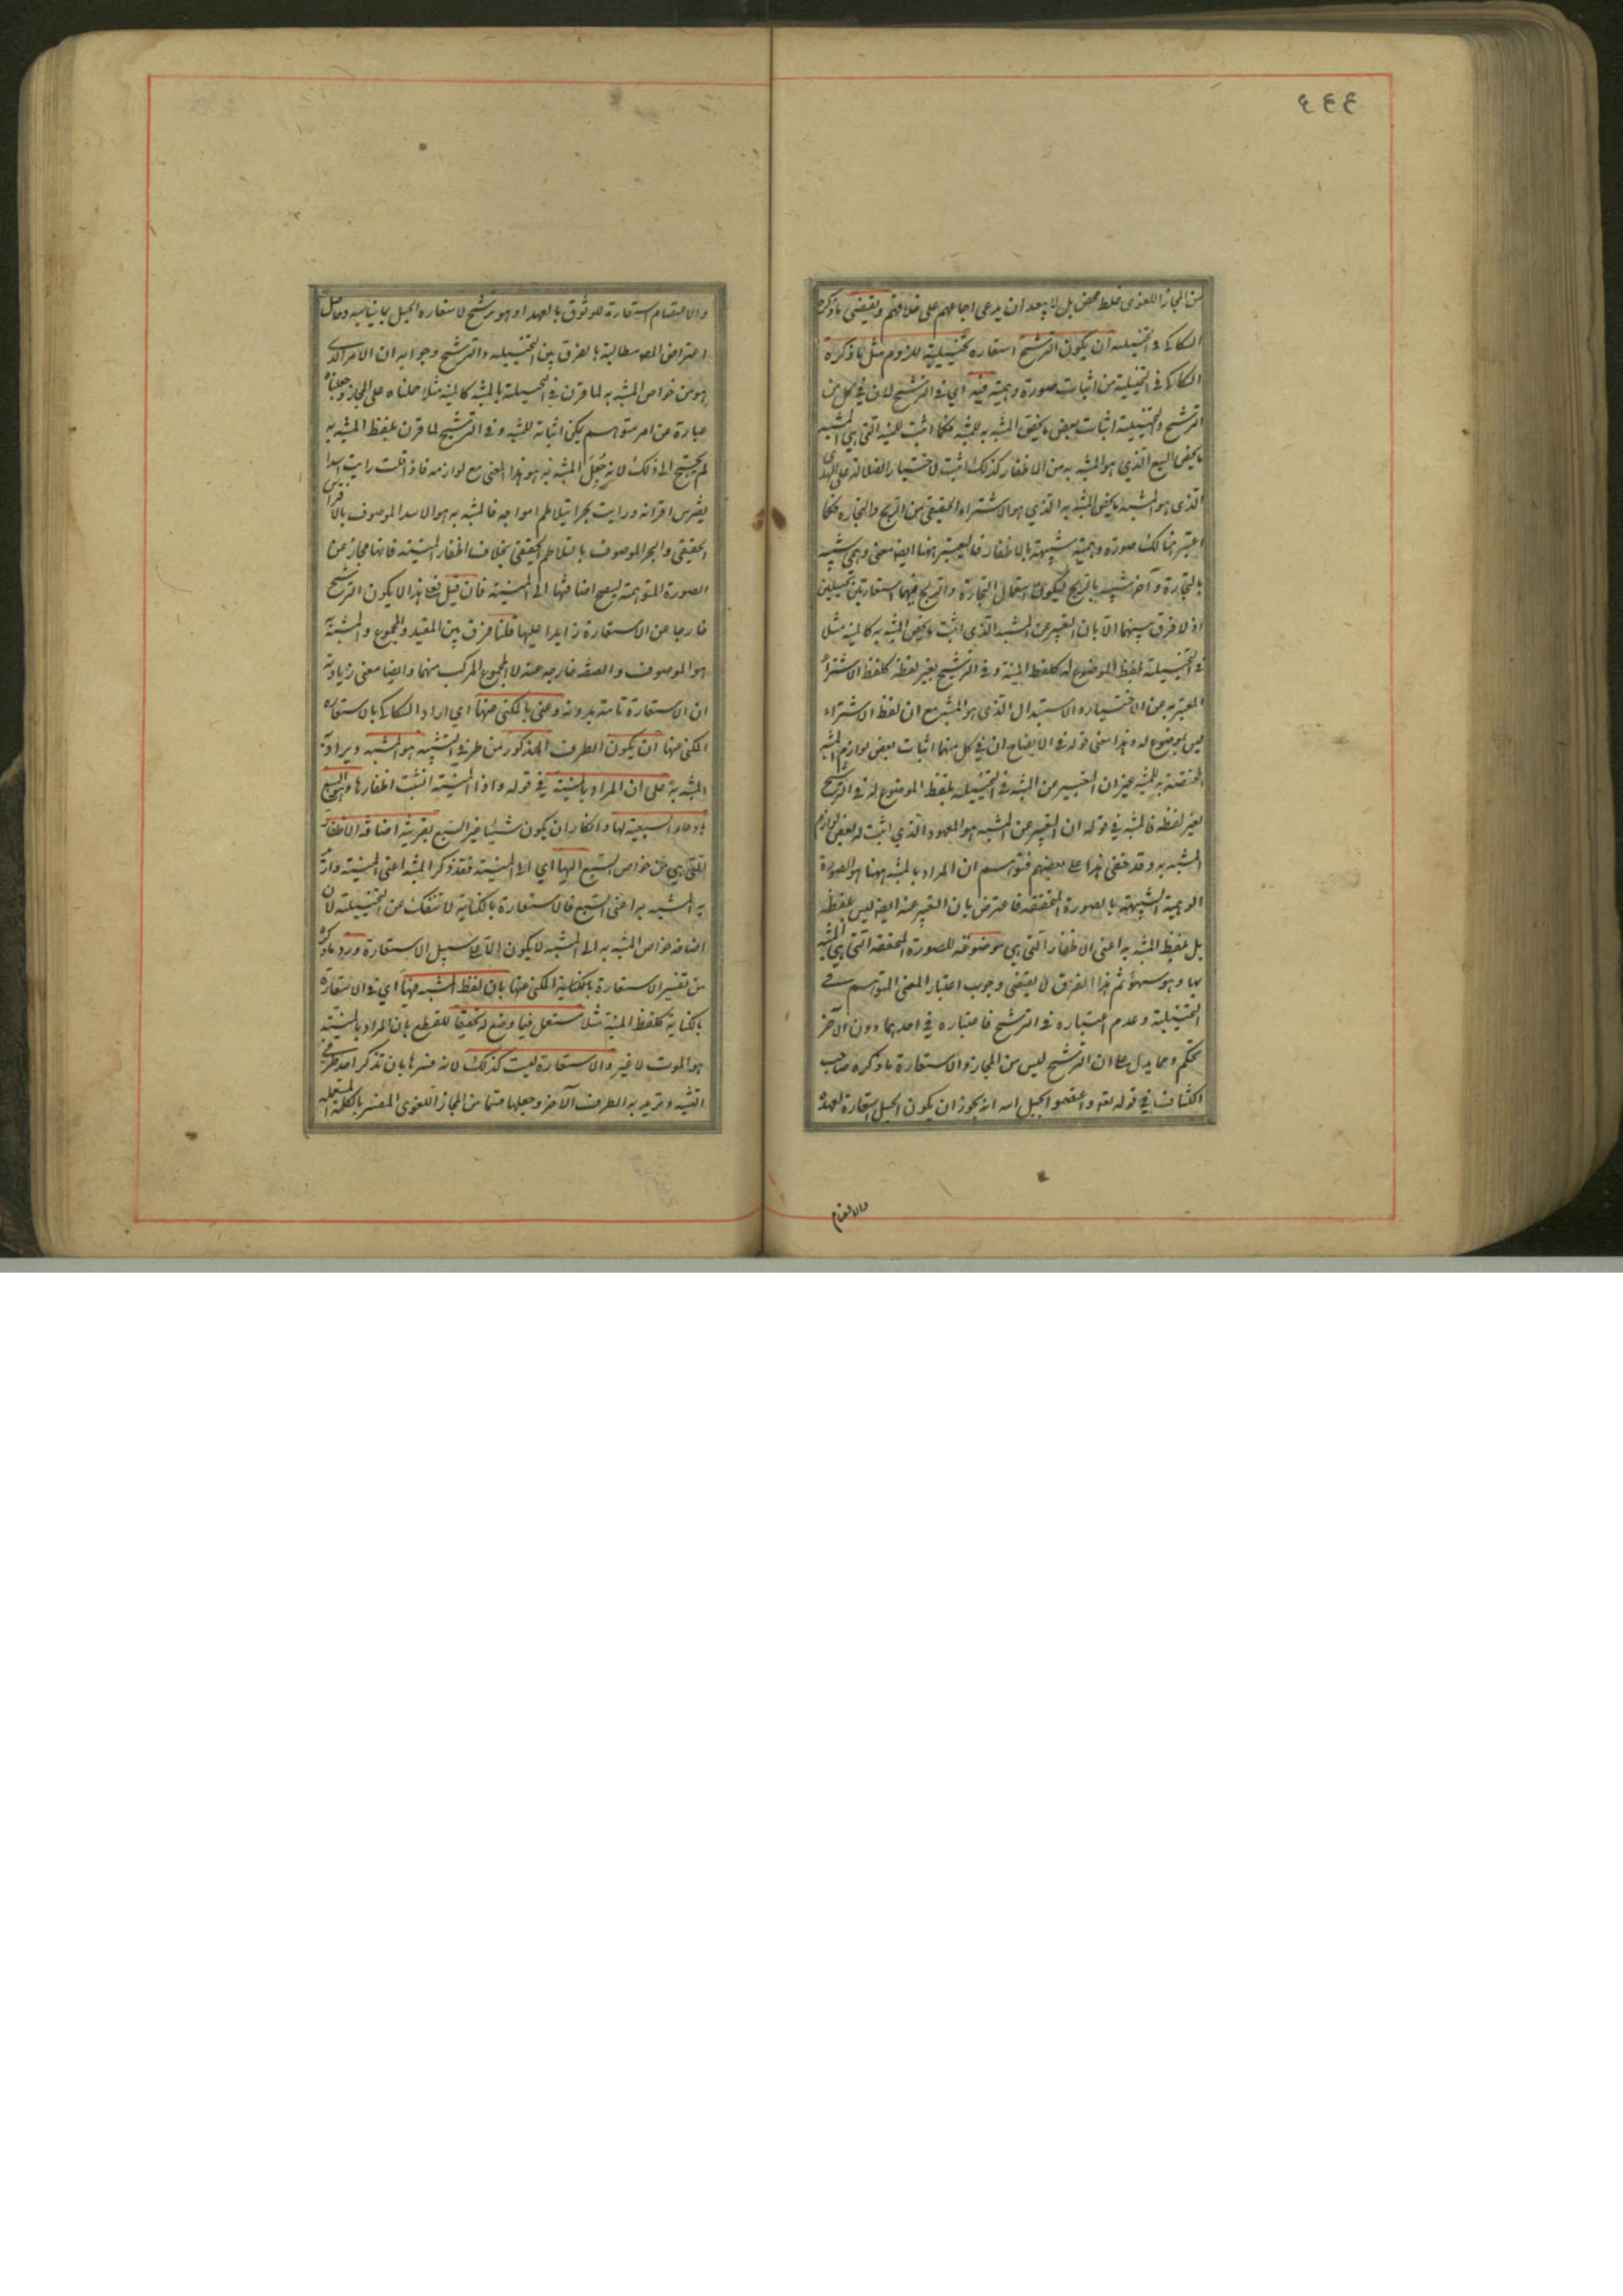 ٤٤٤
من المجاز اللغوى غلط محض بل لا يبعد ان يدعى اجماعهم على خلافهم ويقتضى ما ذكره
السكاكى فى التخييليه ان يكون الترشيح استعاره تخييلية للزوم مثل ما ذكره
السكاكى فى التخييلية من اثبات صورة وهمية فيه اى فى الترشيح لان فى كل من
الترشيح والتخييلية اثبات بعض ما يخص المشبه به للمشبه فكما اثبت للمنيه التى هى المشبه
ما يخص السبع الذى هو المشبه به من الاظفار كذلك اثبت لاختيار الضلاله على الهدى
الذى هو المشبه ما يخص المشبه به الذى هو الاشتراء الحقيقى من الربح والتجاره فكما
اعتبر هنالك صوره وهمية شبيهة بالاظفار فليعتبر ههنا ايضا معنى وهمى شبيه
بالتجارة وآخر شبيه بالربح ليكون استعمال التجارة والربح فيهما استعارتين تخييليتين
اذ لا فرق بينهما الا بان التعبير عن المشبه الذى اثبت له ما يخص المشبه به كالمنية مثلا
فى التخييلية بلفظ الموضوع له كلفظ المنية وفى الترشيح بغير لفظه كلفظ الاشتراء
المعبر به عن الاختيار والاستبدال الذى هو المشبه مع ان لفظ الاشتراء
ليس بموضوع له وهذا معنى قوله فى الايضاح ان فى كل منهما اثبات بعض لوازم المشبه به
المختصة به للمشبه غير ان التعبير عن المشبه فى التخييليه بلفظ الموضوع له وفى الترشيح
بغير لفظه فالمشبه فى قوله ان التعبير عن المشبه هو المعهود الذى اثبت له بعض لوازم
المشبه به وقد خفى هذا على بعضهم فتوهم ان المراد بالمشبه ههنا هو الصورة
الوهمية الشبيهة بالصورة المحققه فاعترض بان التعبير عنه ايضا ليس بلفظه
بل بلفظ المشبه به اعنى الاظفار التى هى موضوعه للصورة المحققه التى هى المشبه
بها وهو سهو ثم هذا الفرق لا يقتضى وجوب اعتبار المعنى المتوهم فى
التخييلية وعدم اعتباره فى الترشيح فاعتباره فى احدهما دون الآخر
تحكم ومما يدل على ان الترشيح ليس من المجاز والاستعارة ما ذكره صاحب
الكشاف فى قوله تعالى واعتصموا بحبل الله انه يجوز ان يكون الحبل استعارة لعهده
والاعتصام
والاعتصام استعارة للوثوق بالعهد او هو ترشيح لاستعاره الحبل بما يناسبه وحاصل
اعتراض المص مطالبة بالفرق بين التخييليه والترشيح وجوابه ان الامر الذى
هو من خواص المشبه به لما قرن فى التخييلية بالمشبه كالمنية مثلا حملناه على المجاز وجعلناه
عبارة عن امر متوهم يمكن اثباته للمشبه وفى الترشيح لما قرن بلفظ المشبه به
لم يحتج الى ذلك لانه جعل المشبه به هو هذا المعنى مع لوازمه فاذا قلت رايت اسدا
يفترس اقرانه ورايت بحرا يتلاطم امواجه فالمشبه به هو الاسد الموصوف بالافتراس
الحقيقى والبحر الموصوف بالتلاطم الحقيقى بخلاف اظفار المنية فانها مجاز عن
الصورة المتوهمة ليصح اضافتها الى المنية فان قيل فعلى هذا لا يكون الترشيح
خارجا عن الاستعارة زايدا عليها قلنا فرق بين المقيد والمجموع والمشبه به
هو الموصوف والصفه خارجه عنه لا المجموع المركب منهما وايضا معنى زيادته
ان الاستعارة تامة بدونه وعنى بالمكنى عنها اى اراد السكاكى بالاستعاره
المكنى عنها ان يكون الطرف المذكور من طرفى التشبيه هو المشبه ويراد به
المشبه به على ان المراد بالمنية فى قوله واذا المنية انشبت اظفارها هو السبع
بادعاء السبعية لها وانكار ان يكون شيئا غير السبع بقرينة اضافة الاظفار
التى هى من خواص السبع اليها اى الى المنية فقد ذكر المشبه اعنى المنية واراد
به المشبه به اعنى السبع فالاستعارة بالكناية لا تنفك عن التخييلية لان
اضافه خواص المشبه به الى المشبه لا يكون الا على سبيل الاستعارة ورد ما ذكره
من تفسير الاستعارة بالكناية المكنى عنها بان لفظ المشبه فيها اى فى الاستعاره
بالكناية كلفظ المنية مثلا مستعمل فيما وضع له تحقيقا للقطع بان المراد بالمنية
هو الموت لا غير والاستعارة ليست كذلك لانه فسرها بان تذكر احد طرفى
التشبيه وتريد به الطرف الآخر وجعلها قسما من المجاز اللغوى المفسر بالكلمة المستعمله